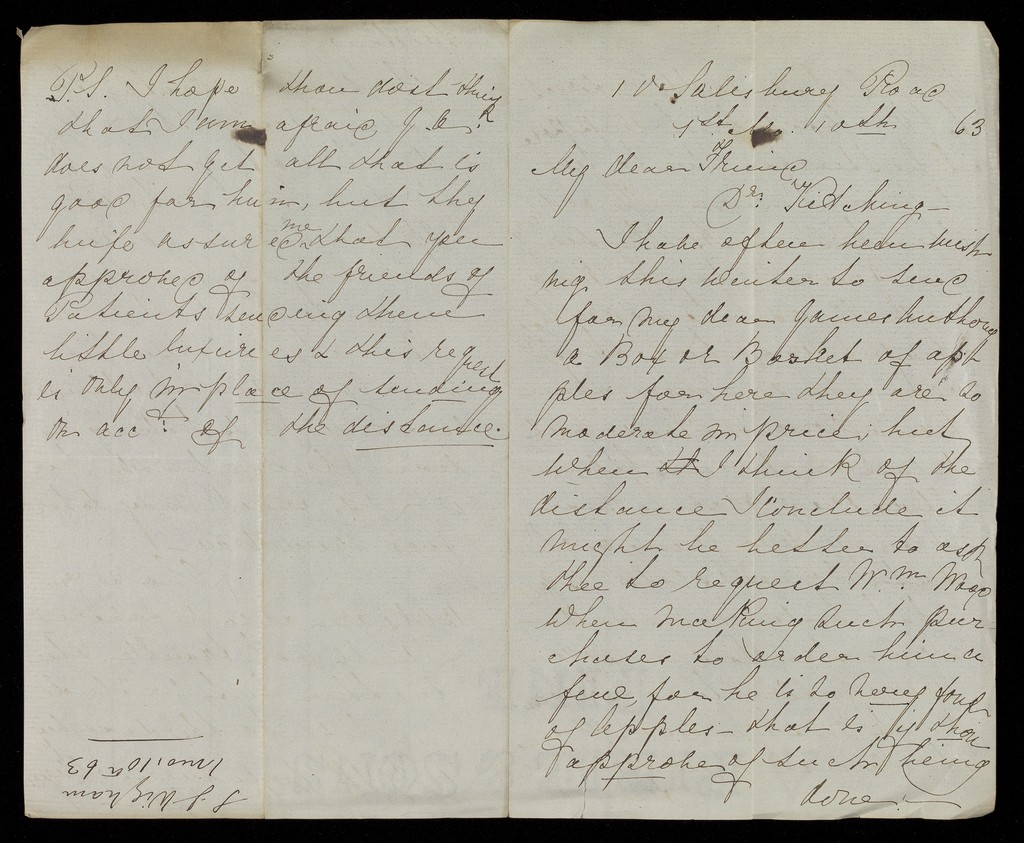 10 Salisbury Road
1st Mo. 10th 63
My dear Friend
Dr. Kitching -
I have often been wish
ing this winter to send
for my dear James Anthony
a Box or Basket of ap
ples for here they are so
moderate in price; but
when I think of the
distance I conclude it
might be better to ask
thee to request Wm. Wood
when making such pur
chases to order him a
few, for he is so very fond
of apples - that is if thou
approve of such being
done. -
P.S. I hope thou dost think
that I am afraid, J. A.
does not get all that is
good for him, but thy
wife assured me that you
approved of the friends of
Patients sending them
little luxuries & this request
is only in place of sending
on acct. of the distance.
J Wigham
1 mo: 10th 63